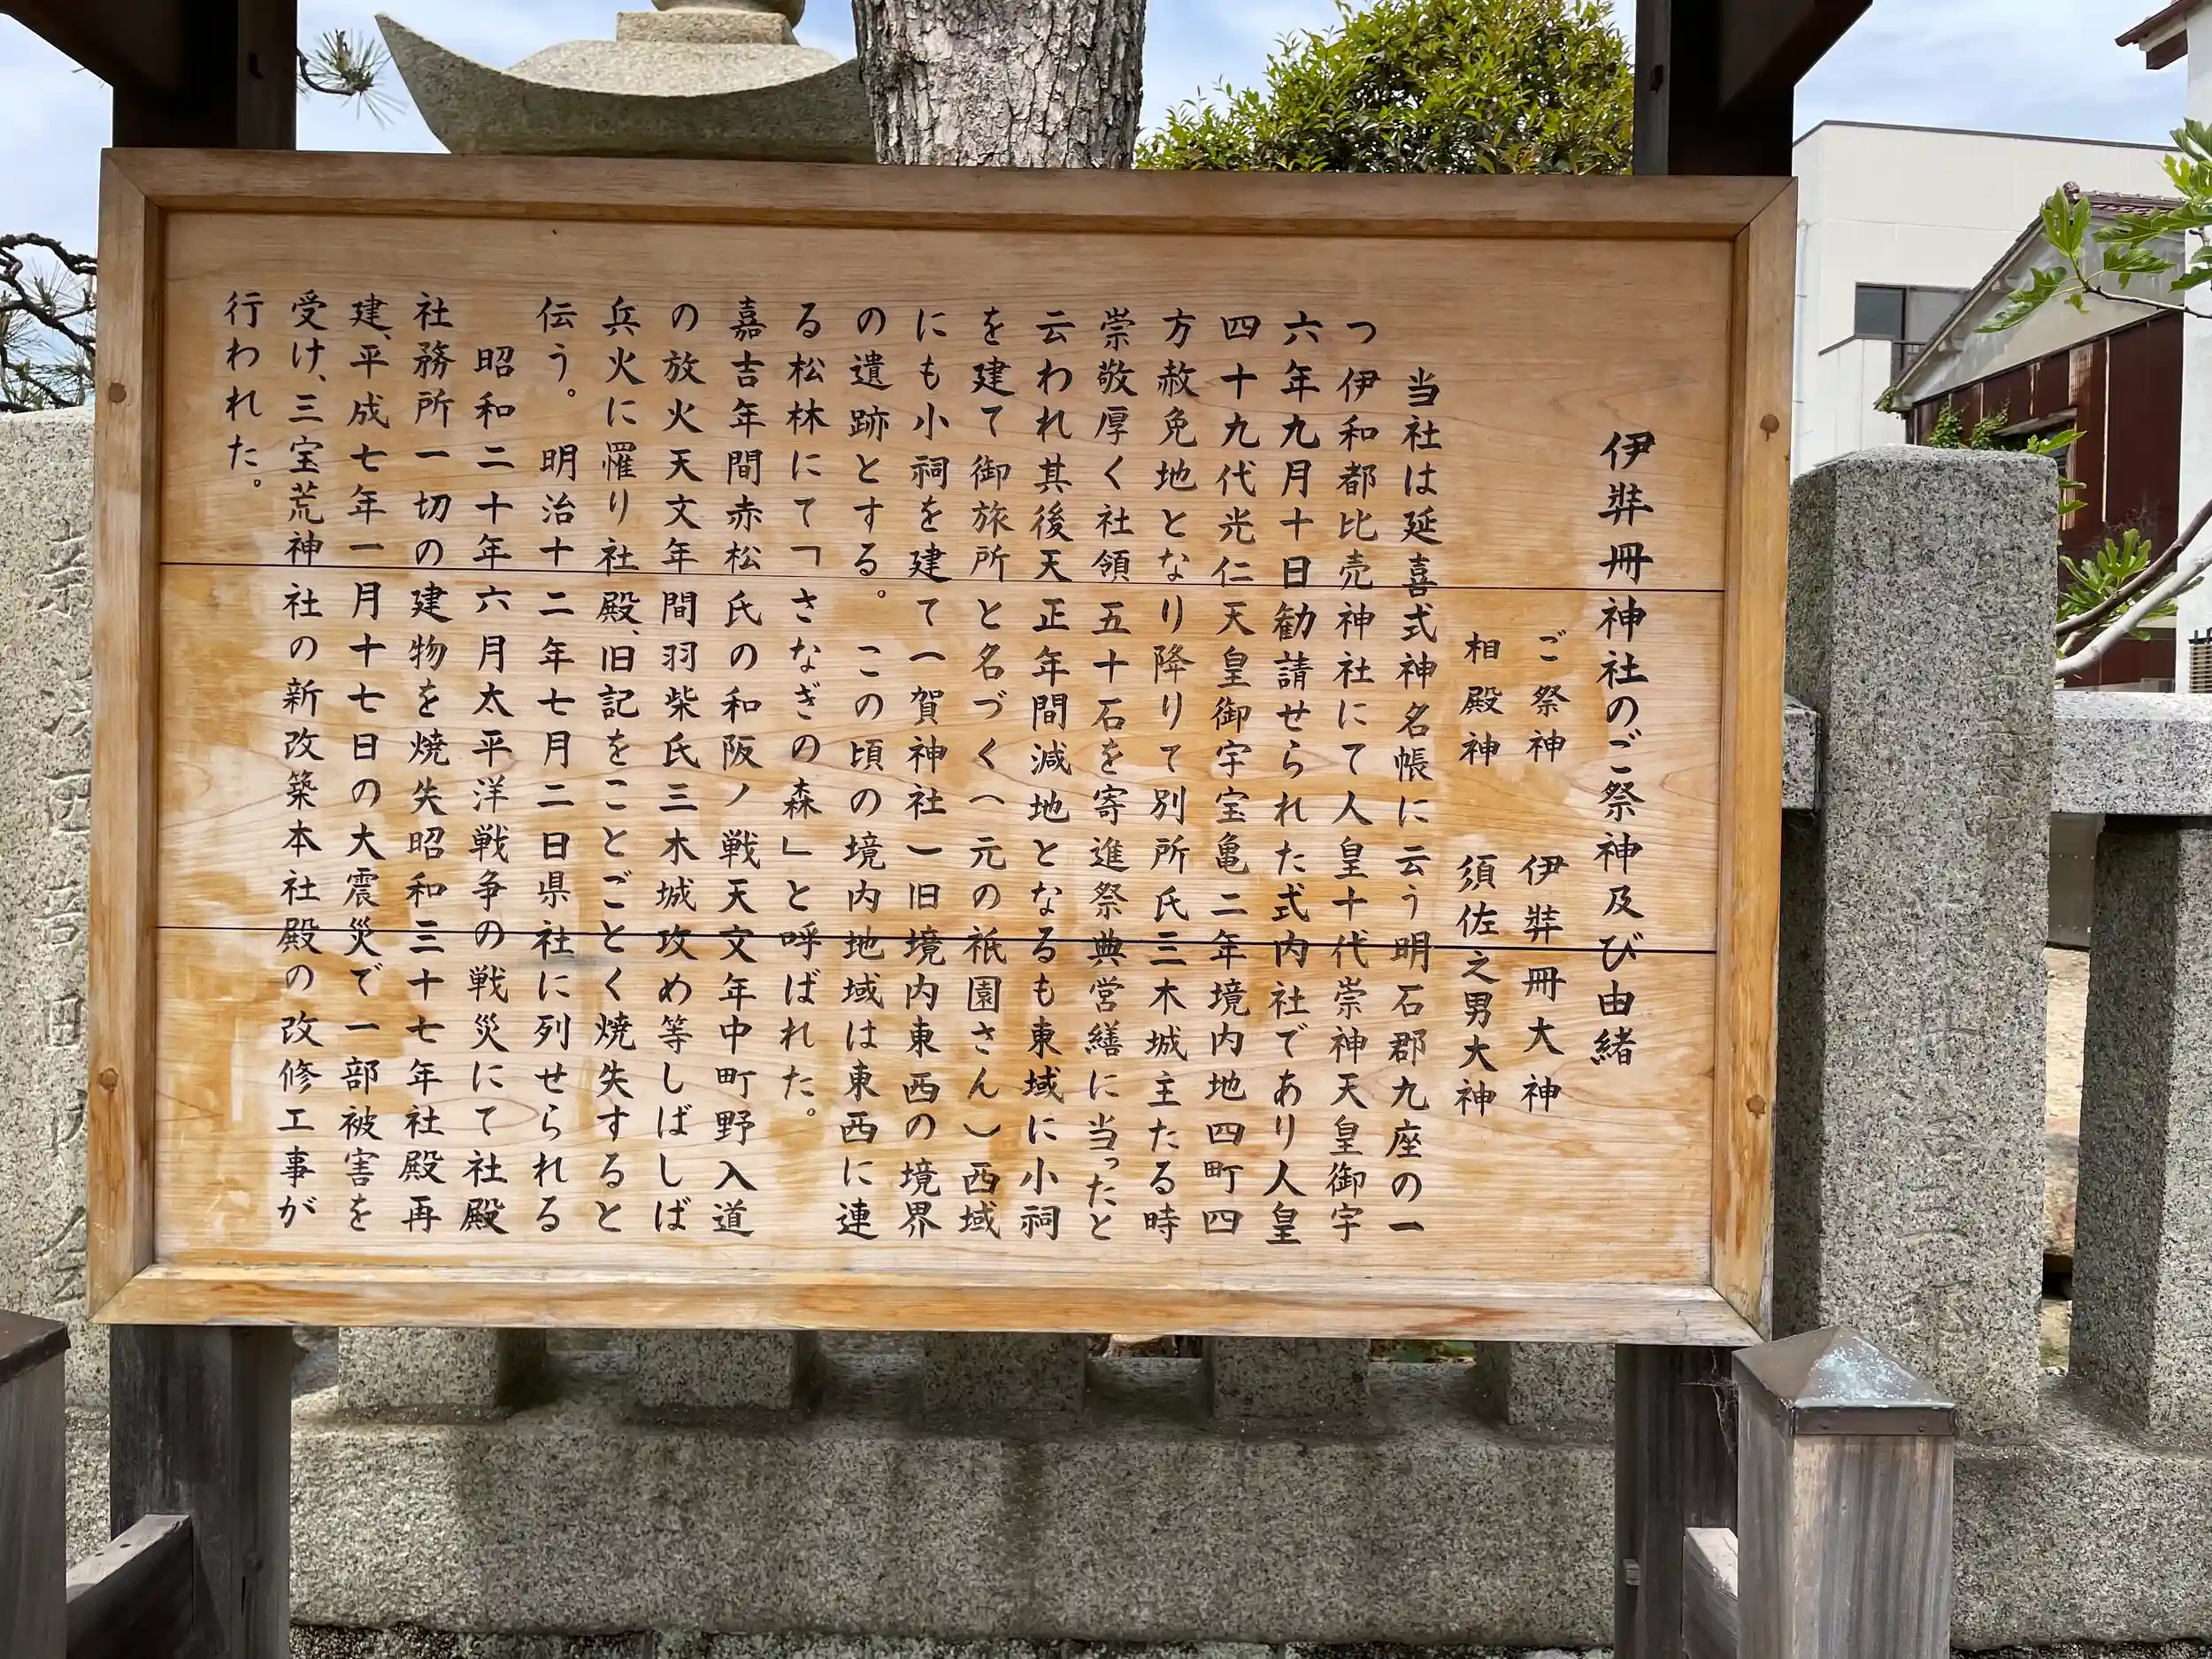 伊弉冊神社のご祭神及び由緒
ご祭神 伊弉冊大神
相殿神 須佐之男大神
当社は延喜式神名帳に云う明石郡九座の一
つ伊和都比売神社にて人皇十代崇神天皇御宇
六年九月十日勧請せられた式内社であり人皇
四十九代光仁天皇御宇宝亀二年境内地四町四
方赦免地となり降りて別所氏三木城主たる時
崇敬厚く社領五十石を寄進祭典営繕に当ったと
云われ其後天正年間減地となるも東域に小祠
を建て御旅所と名づく(元の祇園さん)西域
にも小祠を建て(賀神社)旧境内東西の境界
の遺跡とする。この頃の境内地域は東西に連
る松林にて「さなぎの森」と呼ばれた。
嘉吉年間赤松氏の和阪ノ戦天文年中町野入道
の放火天文年間羽柴氏三木城攻め等しばしば
兵火に罹り社殿、旧記をことごとく焼失すると
伝う。明治十二年七月二日県社に列せられる
昭和二十年六月太平洋戦争の戦災にて社殿
社務所一切の建物を焼失昭和三十七年社殿再
建、平成七年一月十七日の大震災で一部被害を
受け、三宝荒神社の新改築本社殿の改修工事が
行われた。